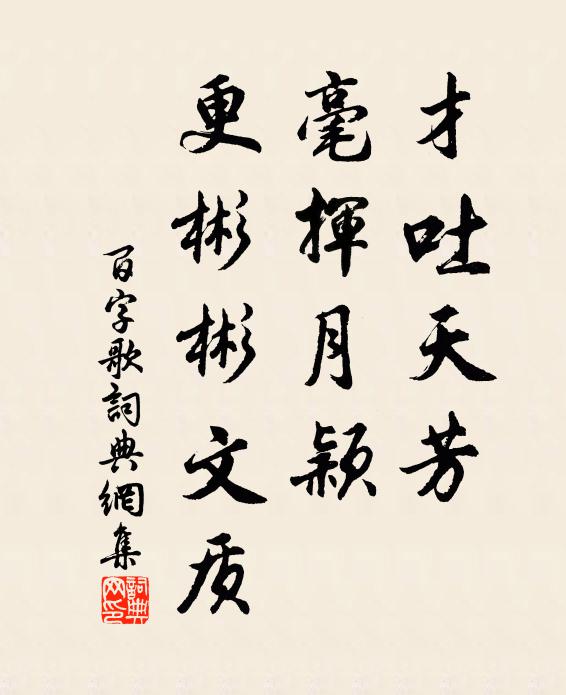 才吐天芳
毫揮月穎
更彬彬文质
百字歌詞典網集
詞典
网印